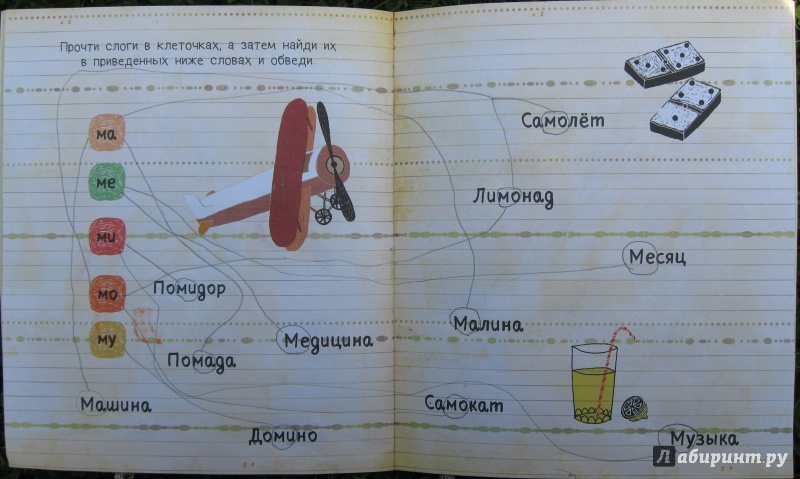 Прочти слоги в клеточках, а затем найди их
в приведенных ниже словах и обведи.
ма
ме
ми
мо
му
Помидор
Помада
Медицина
Машина
Домино
Самолёт
Лимонад
Месяц
Малина
Самокат
Музыка
Лабиринт.ру